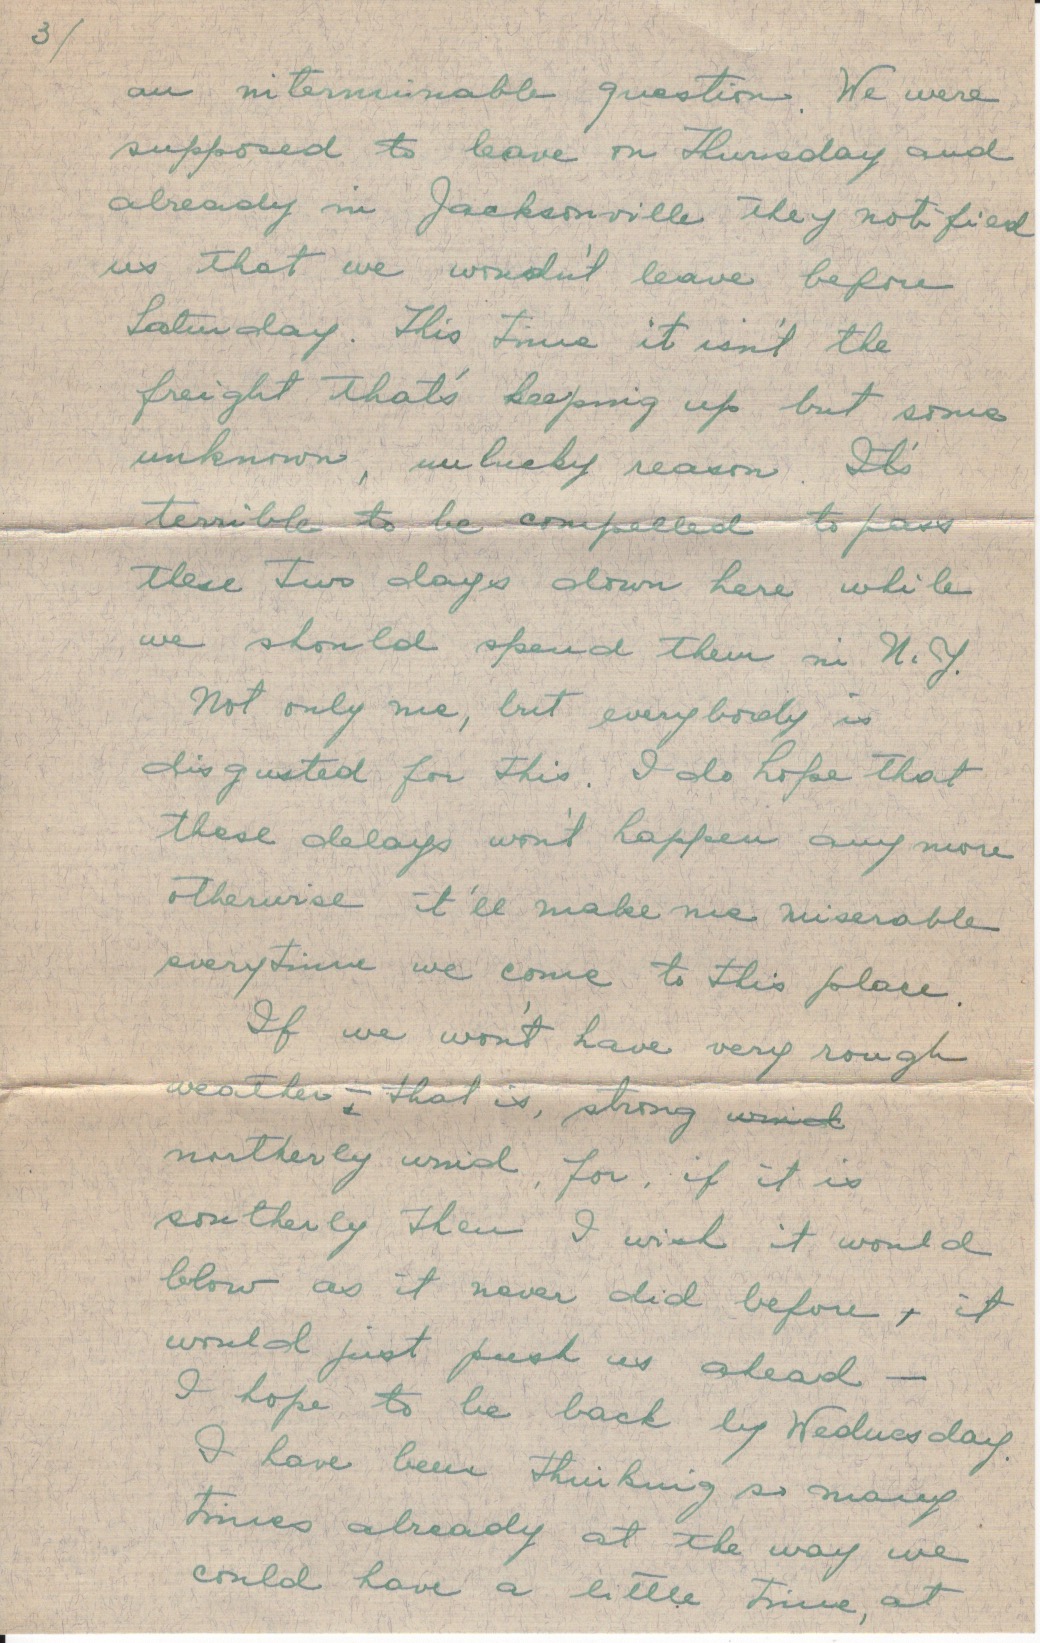 3/
an interminable question. We were
supposed to leave on Thursday and
already in Jacksonville they notified
us that we woudn't leave before
Saturday. This time it isn't the
freight that's keeping up but some
unknown, unlucky reason. It's
terrible to be compelled to pass
these two days down here while
we should spend them in N.Y.
Not only me, but everybody is
disgusted for this. I do hope that
these delays won't happen any more
otherwise it'll make me miserable
everytime we come to this place.
If we won't have very rough
weather - that is, strong wind
northerly wind, for, if it is
southerly then I wish it would
blow as it never did before, it
would just push us ahead —
I hope to be back by Wednesday.
I have been thinking so many
times already at the way we
could have a little time, at